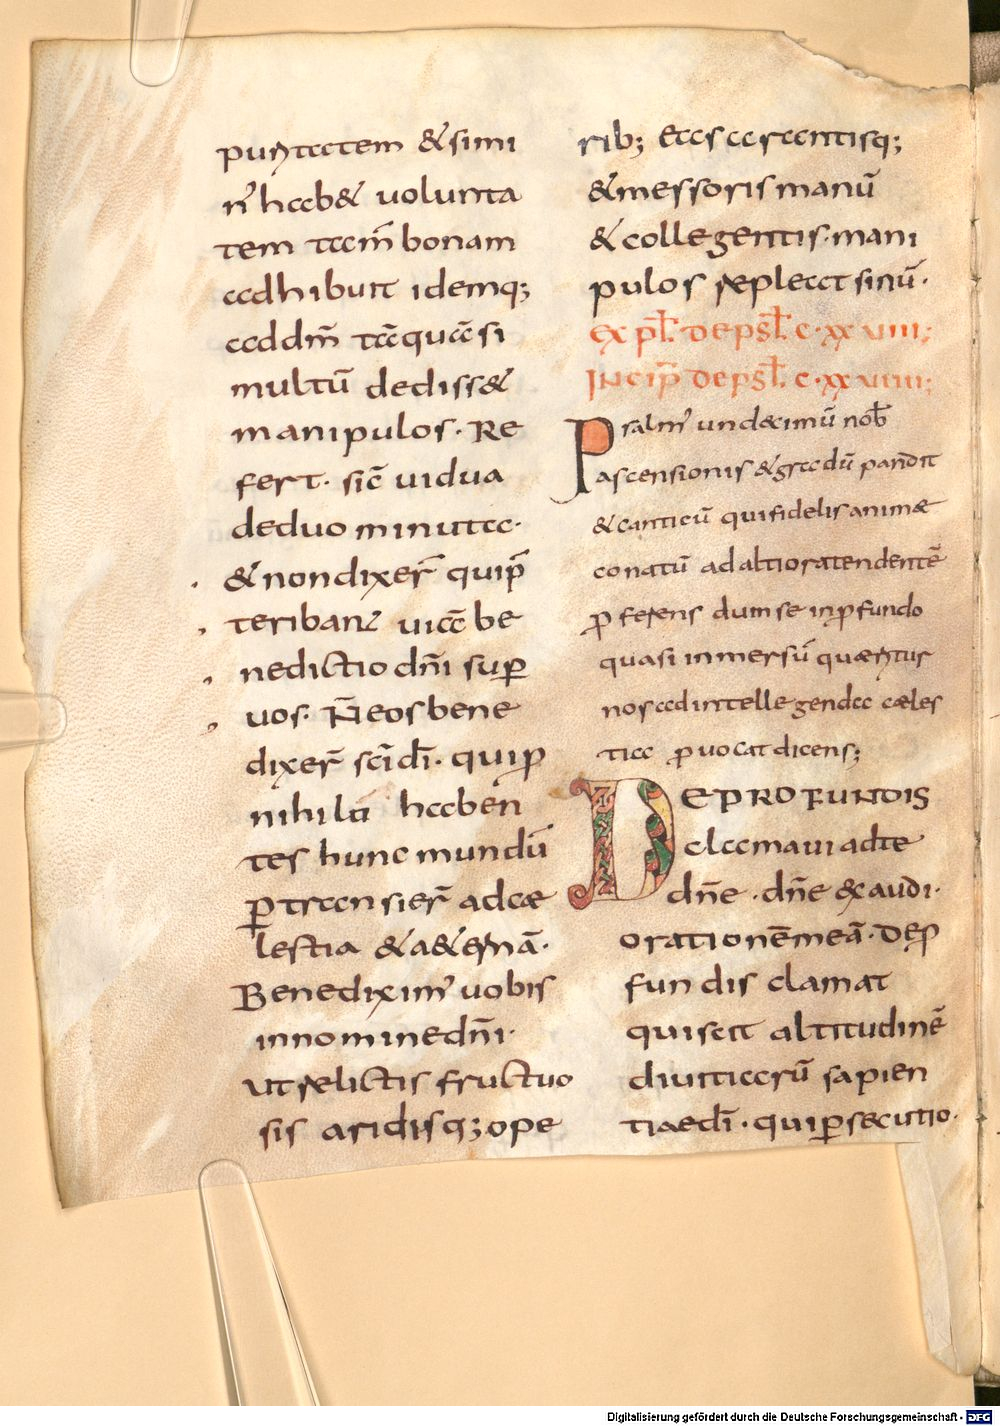 puṇtatem &simi
n̄ hab& volunta
tem tam̄ bonam
adhibuit idemq;
addm̄ tāquā si
multū dediss&
manipulos. Re
fert. sic̄ uidua
deduo minuta.
&nondixer̄ quip̄
teribant uiā be
nedictio dn̄i sup̱
uos. N̄eosbene
dixer̄ sc̄idī. quip̱
nihilū haben
tes hunc mundū
p̱transier̄ adcæ
lestia &a&ernā.
Benedixim̄ uobis
innominedn̄i.
Ut relictis fructuo
sis aridisq; ope
rib; Eas carentisq;
&messoris manū
&collegentis. mani
pulos repleat sinū.
EXPL̄. DEPSL̄. C. XXVIII;
INCIP̄ DEPSL̄. C. XXVIIII;
Psalm̄ undecimū nob̄
ascensionis &gradū pandit
&canticū quifidelis animæ
conatū adaltioratendentē
p̱ferens dumse inp̱fundo
quasi inmersū quæritur
nos adintellegenda cæles
tia p̱uocat dicens;
DEPROFUNDIS
clamavi adte
dn̄e. dn̄e exaudi.
orationēmeā. Dep̱
fundis clamat
quiscit altitudinē
diuitiarū sapien
tiaedī. quip̱secutio.
Digitalisierung gefördert durch die Deutsche Forschungsgemeinschaft - DFG